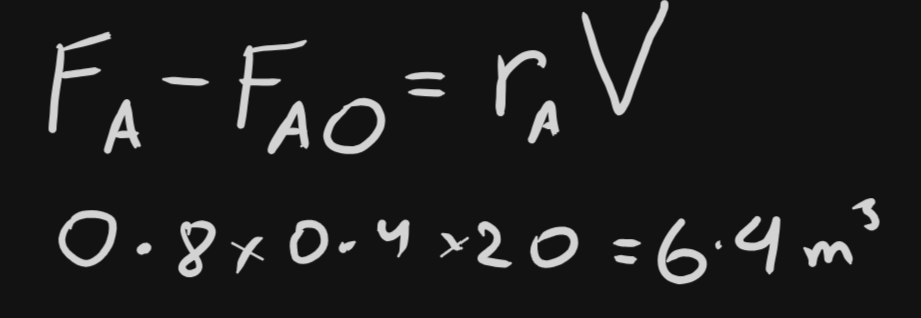 F_A - F_AO = r_A V
0.8 x 0.4 x 20 = 6.4 m³